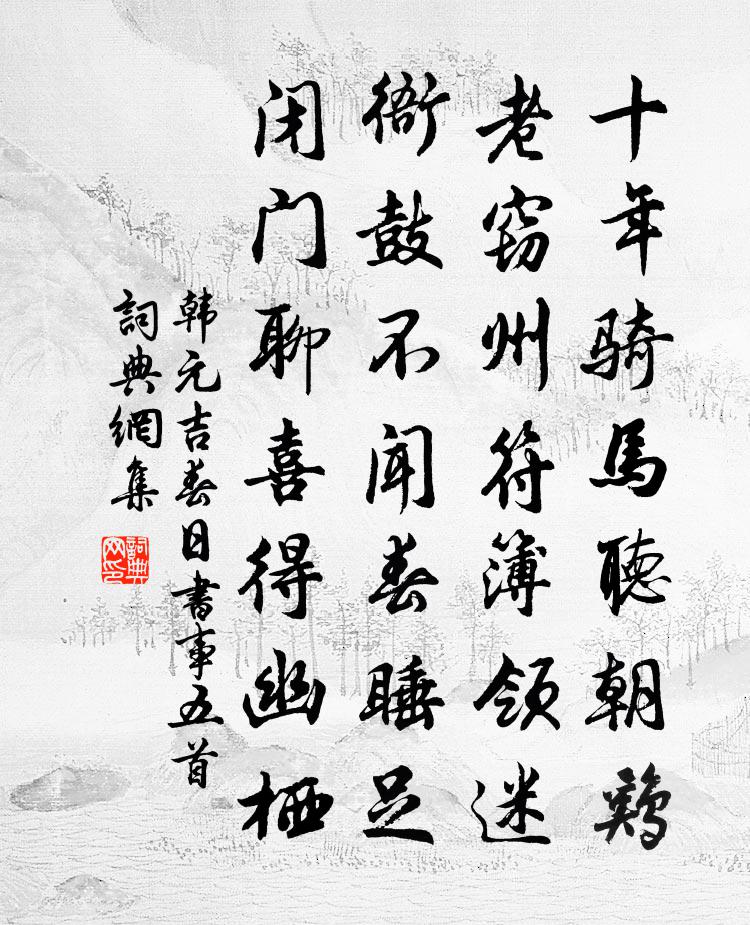 十年骑馬聴朝鷄
老窃州符簿领迷
衙鼓不闻春睡足
闭门聊喜得幽栖
韩元吉春日書事五首
詞典網集
詞典网印